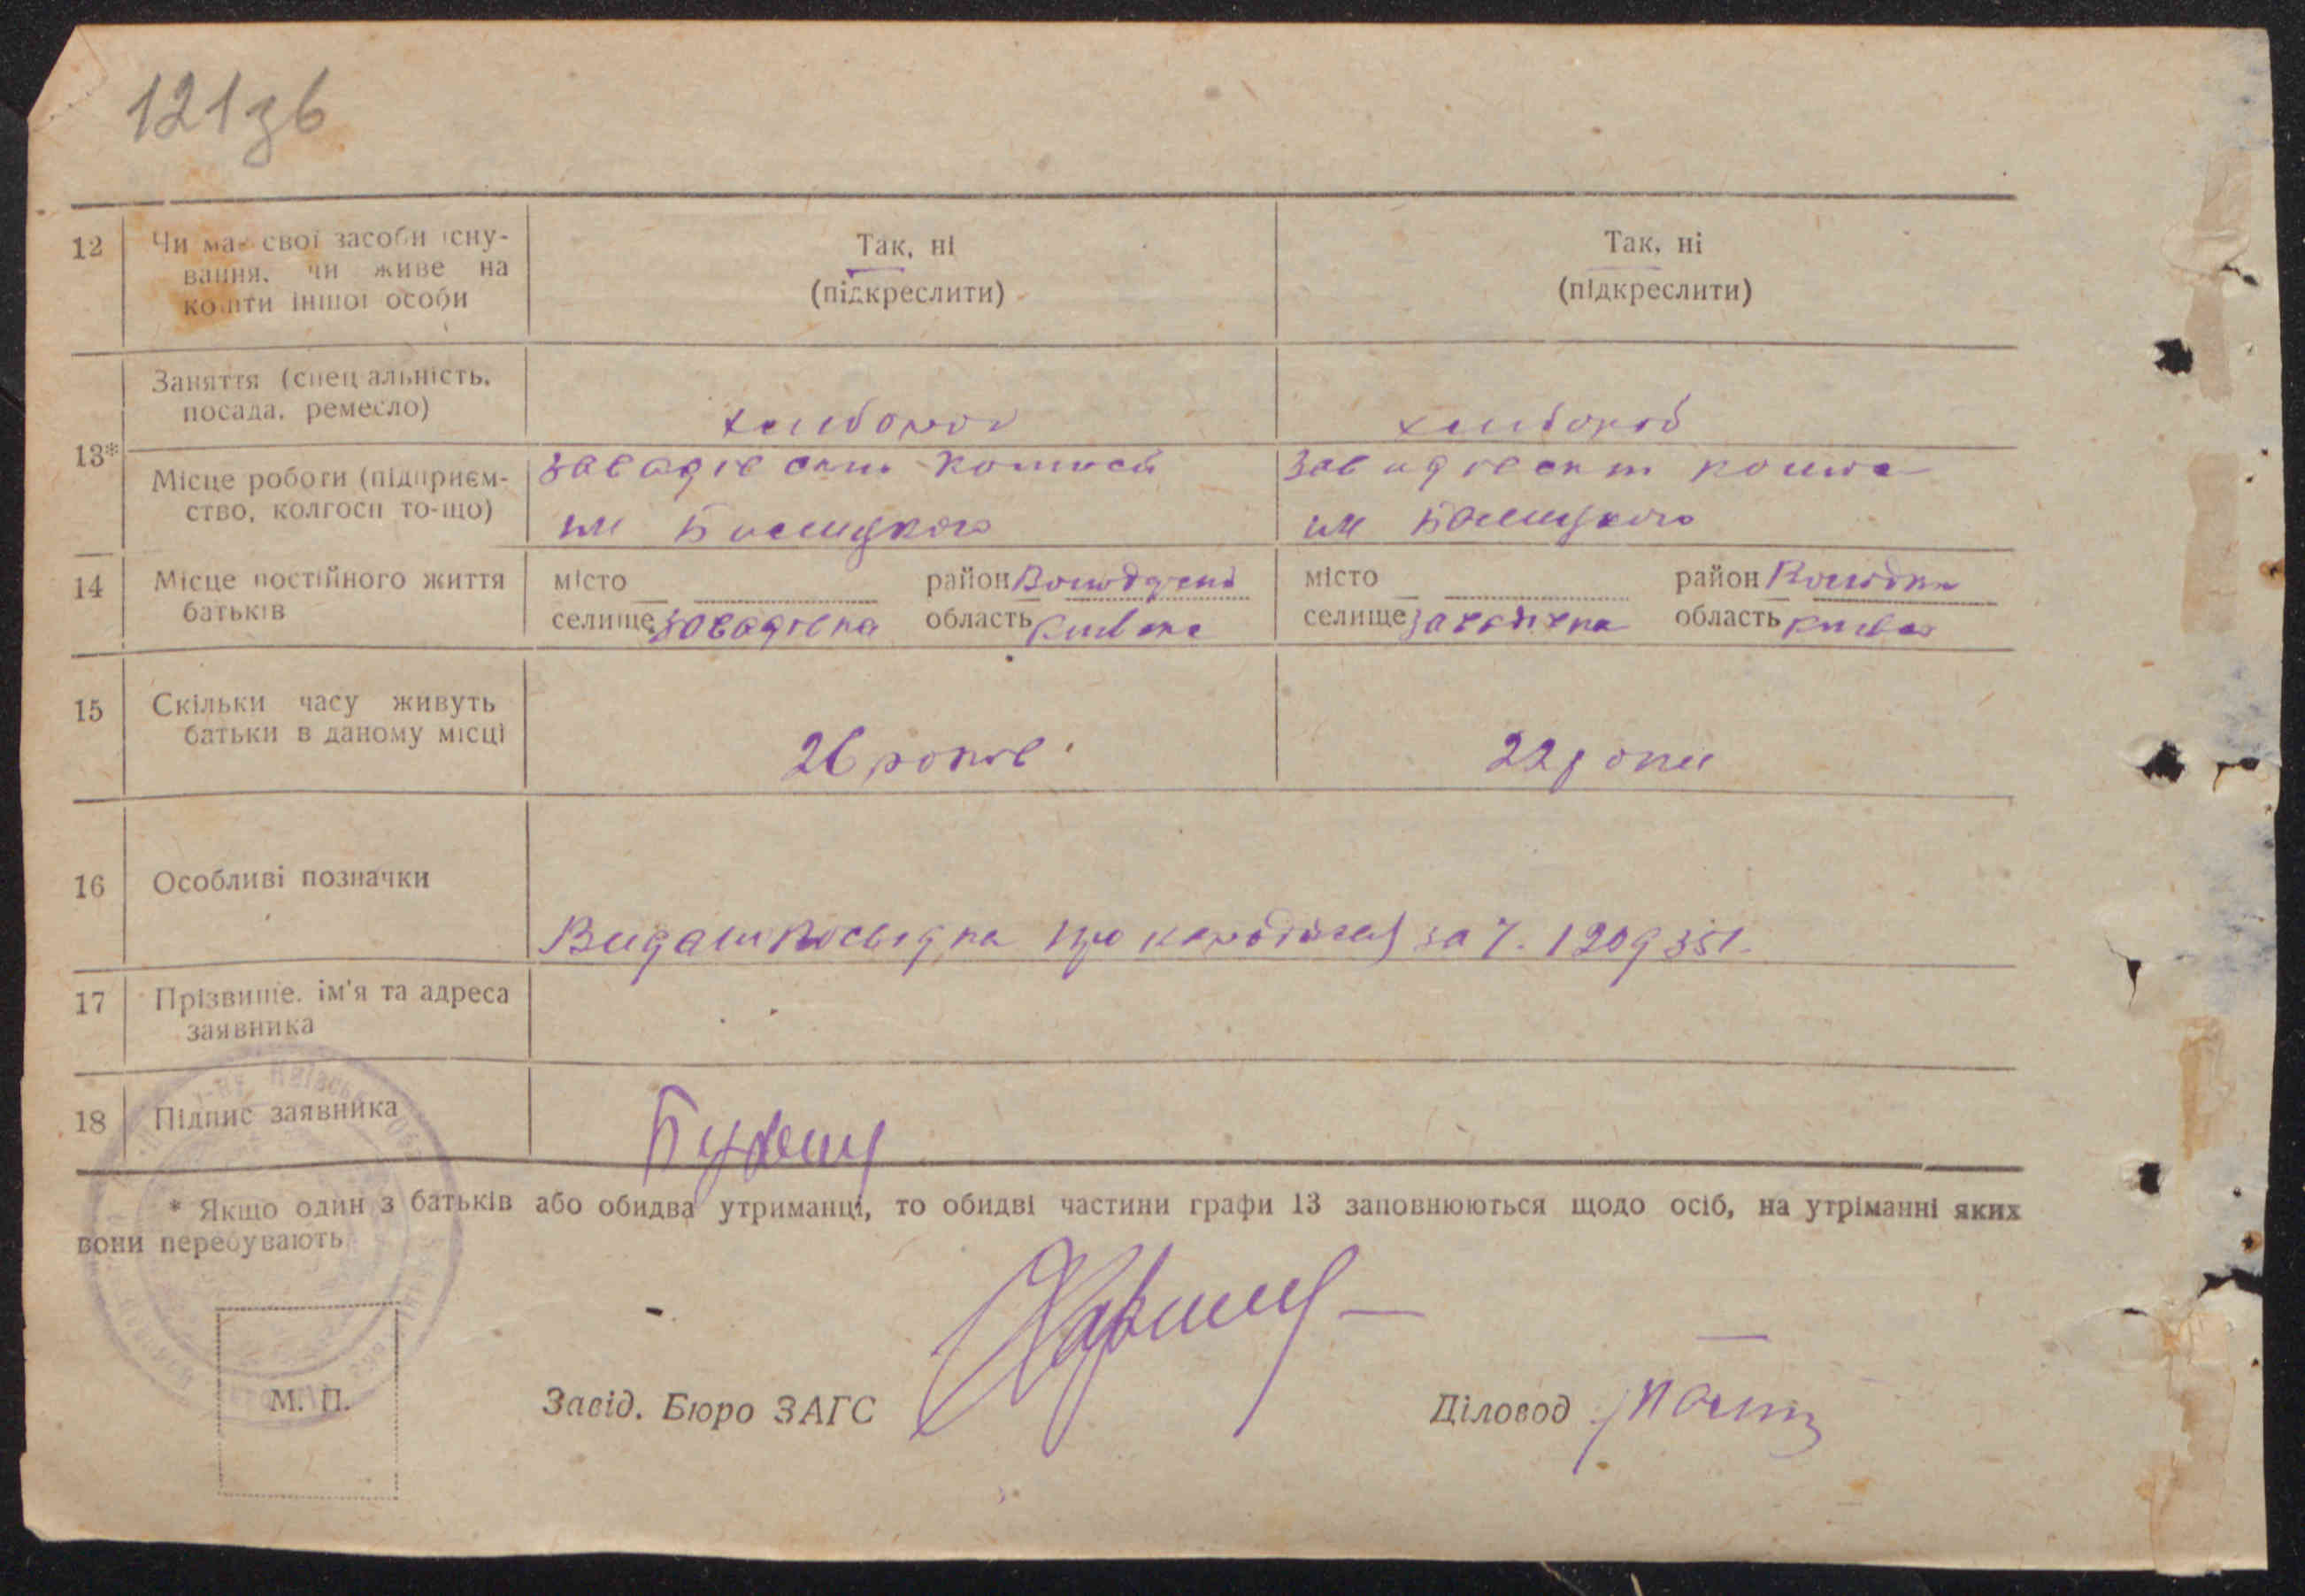 121зв
12 Чи має свої засоби існу-
вання, чи живе на
кошти іншої особи
Так, ні
(підкреслити)
Так, ні
(підкреслити)
13*
Заняття (спеціальність,
посада, ремесло)
хлібороб
хлібороб
Місце роботи (підприєм-
ство, колгосп то-що)
завадівський
ім
завадівский
ім
14 Місце постійного життя
батьків
місто район
селище завадівка область Київська
місто район
селище завадівка область Київськ
15 Скільки часу живуть
батьки в даному місці
26 років
22 роки
16 Особливі позначки
Видали посвідка про за 1209351
17 Прізвище, ім'я та адреса
заявника
18 Підпис заявника
* Якщо один з батьків або обидва утриманці, то обидві частини графи 13 заповнюються щодо осіб, на утріманні яких
вони перебувають
М. П.
Завід. Бюро ЗАГС
Діловод